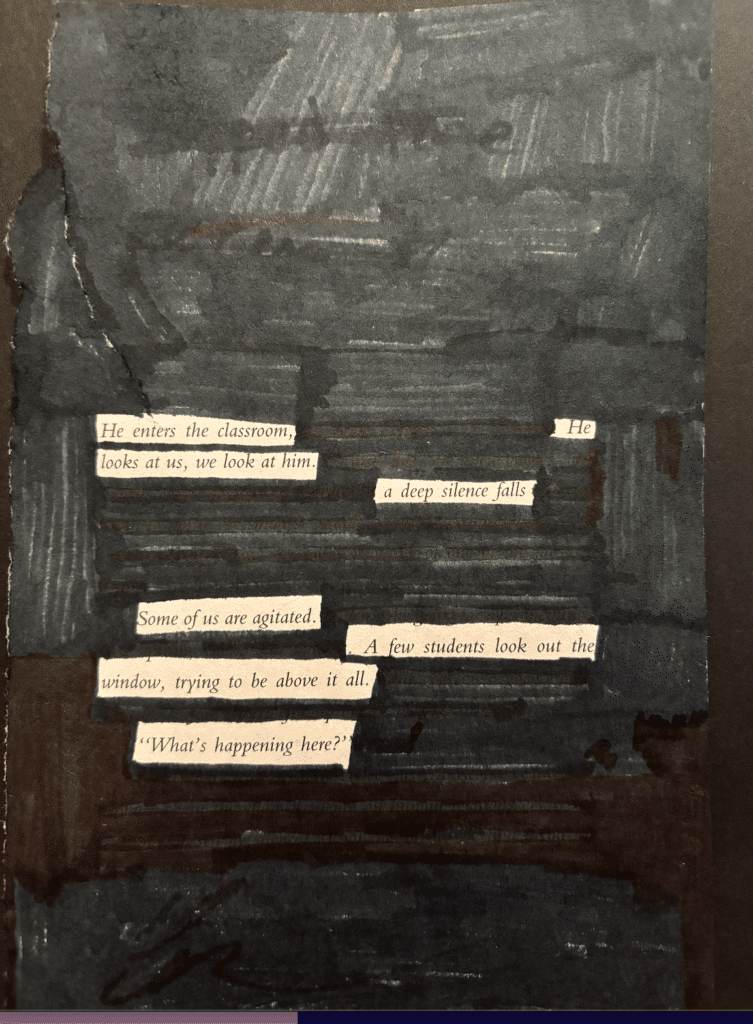 He enters the classroom, He
looks at us, we look at him.
a deep silence falls
Some of us are agitated.
. A few students look out the
window, trying to be above it all.
“What’s happening here?”